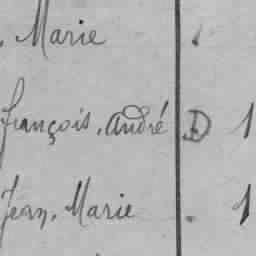 . Marie .
françois, André D 1
Jean, Marie . 1